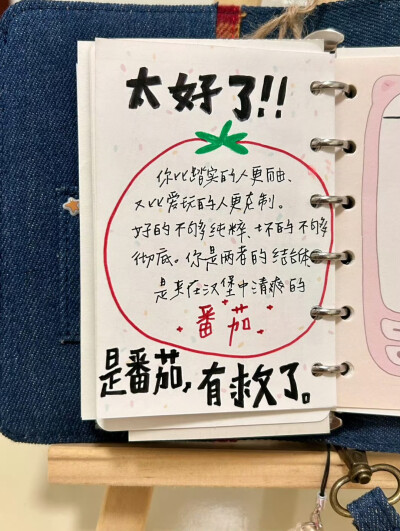 太好了!!
你比踏实的人更自由、
又比爱玩的人更克制。
好的不够纯粹、坏的不够
彻底。你是两者的结合体。
是夹在汉堡中清爽的
番茄
是番茄,有救了。